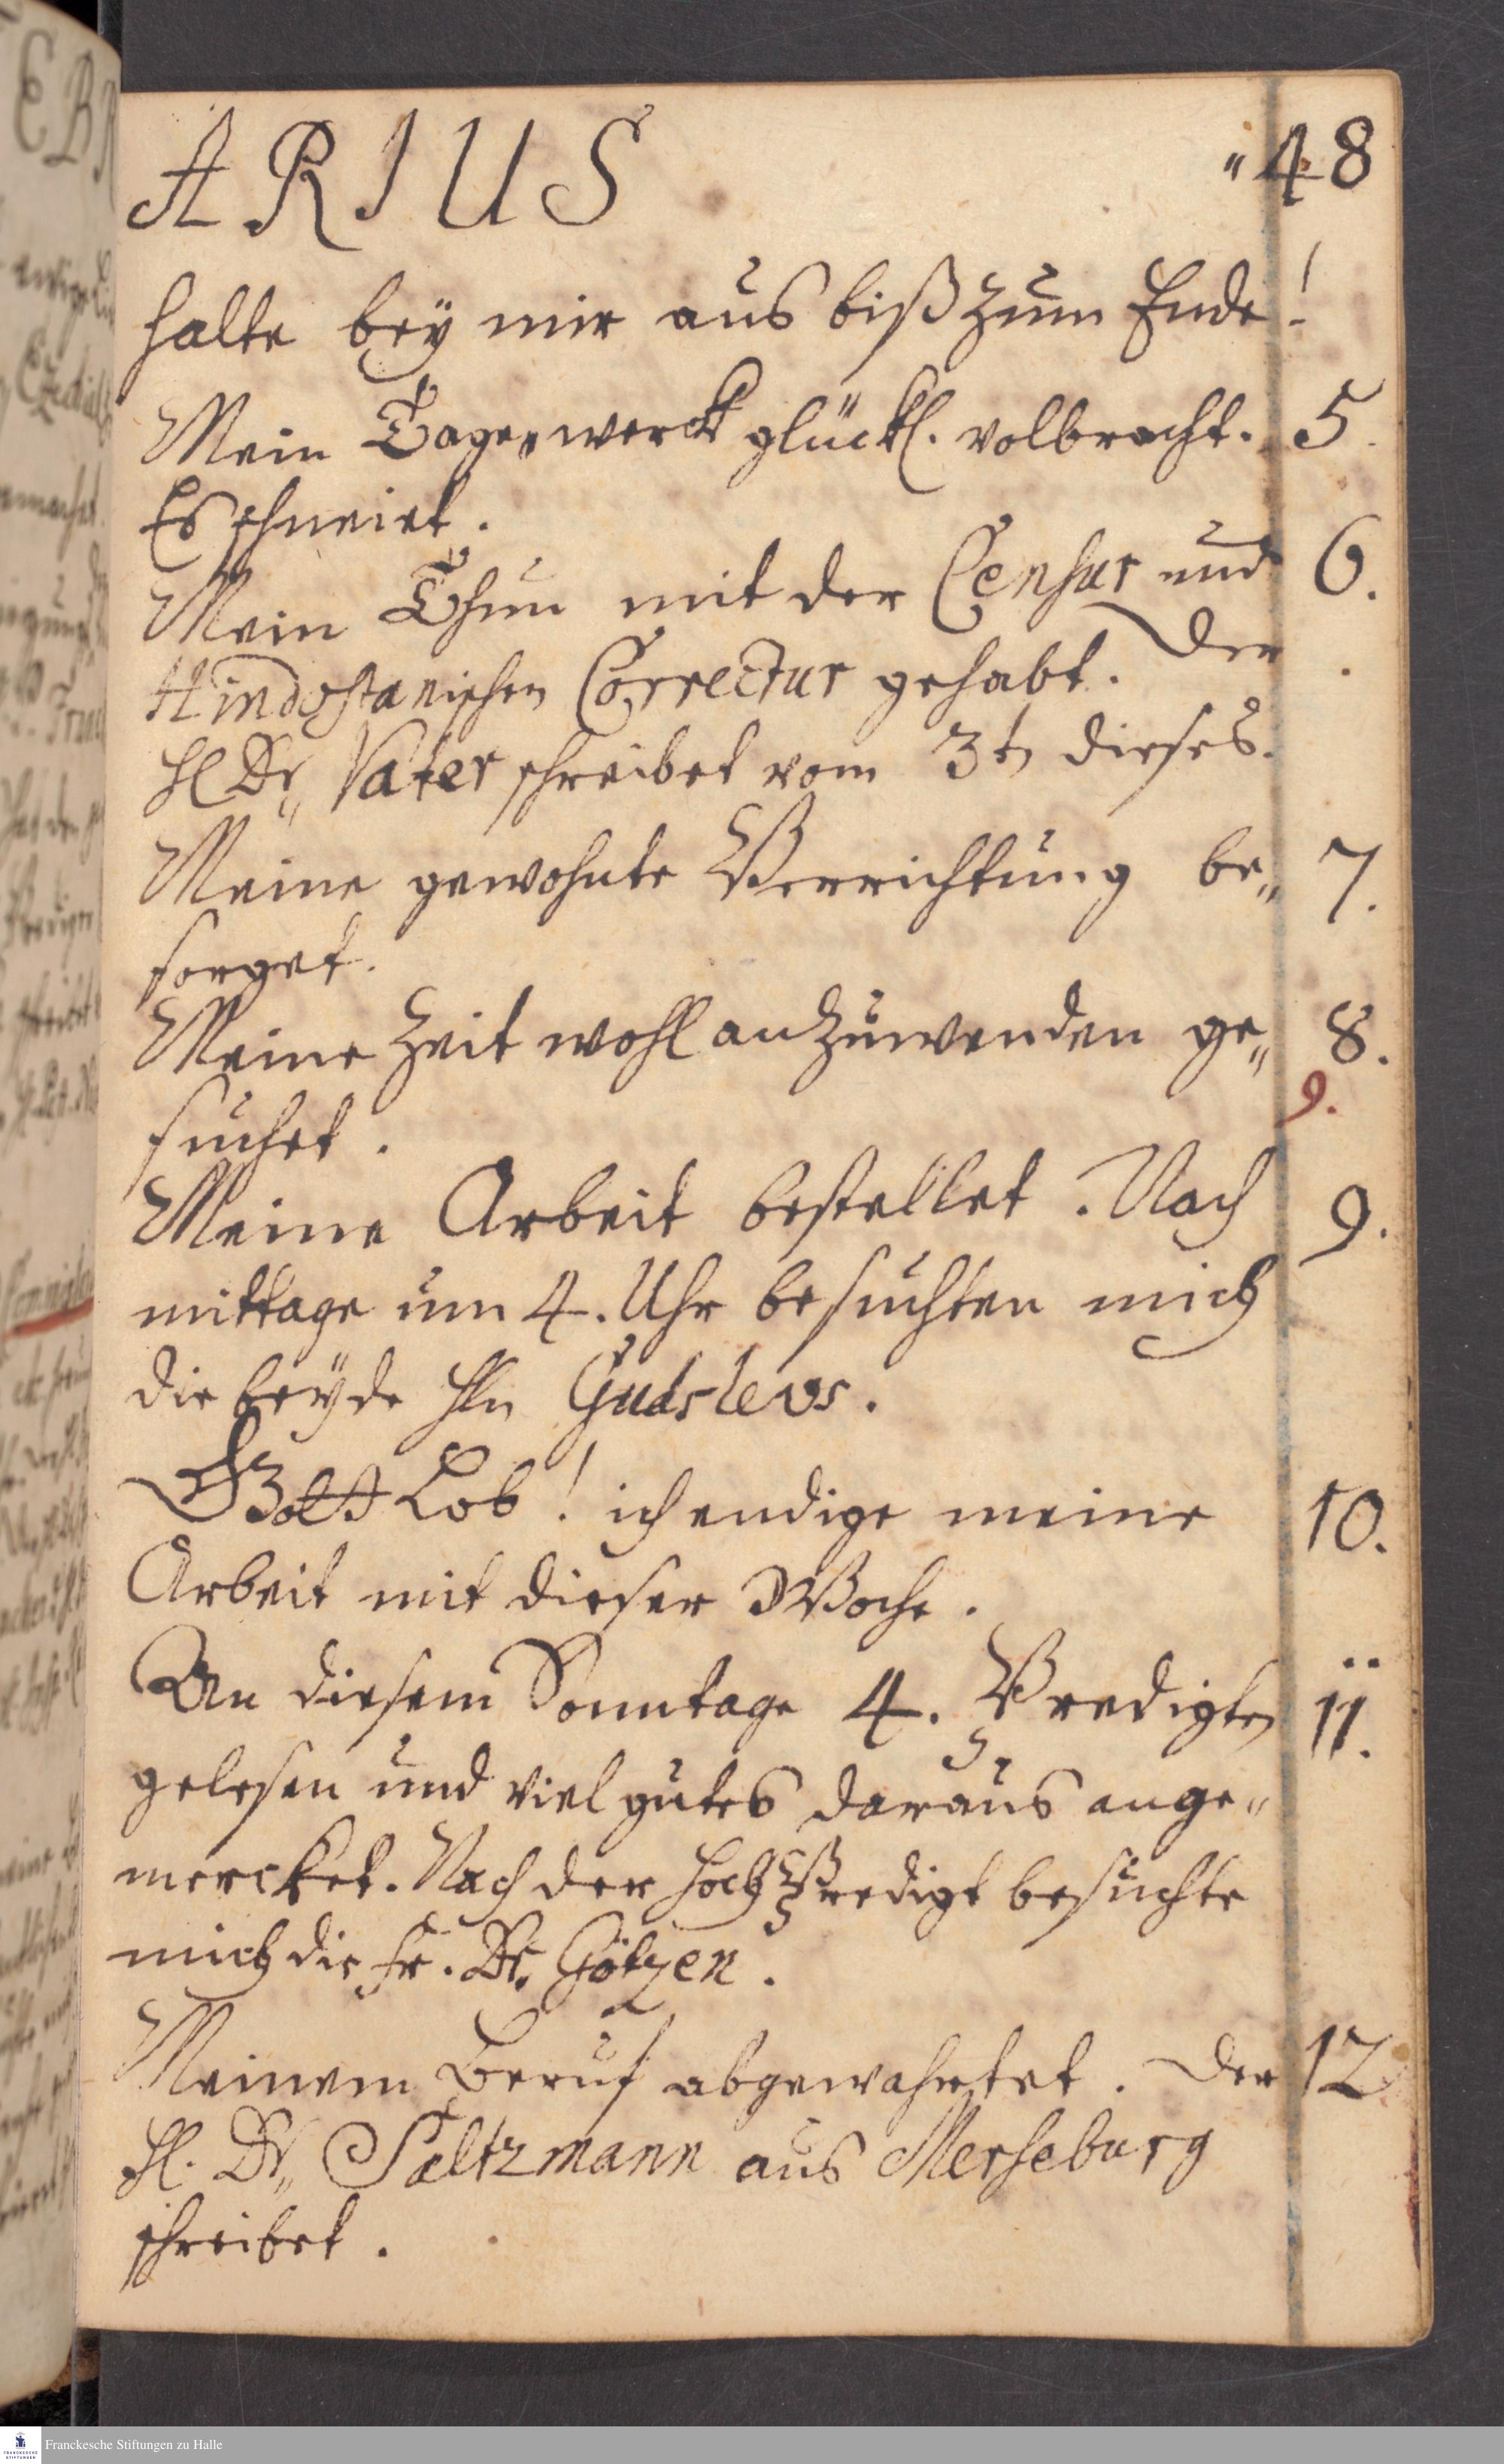 ARIUS "48
halte beÿ mir aus biß zum Ende!
Mein Tageswerck glückl. volbracht. 5.
Es schneiet.
Mein Thun mit der Censur und 6.
Hindostanischen Correctur gehabt. Der
Hl Dr„ Vater schreibet vom 3tn dieses.
Meine gewohnte Verrichtung be„ 7.
sorget.
Meine Zeit wohl anzuwenden ge„ 8.
9.
suchet.
Meine Arbeit bestellet. Nach 9.
mittage um 4. Uhr besuchten mich
die beÿde Hln Gudslevs.
Gott Lob! ich endige meine 10.
Arbeit mit dieser Woche.
An diesem Sonntage 4. Predigten 11.
gelesen und viel gutes daraus ange„
mercket. Nach der Hoch Predigt besuchte
mich die Fr. Dr. Götzen.
Meinem Beruf abgewahrtet. Der 12
Hl. Dr„ Saltzmann aus Merseburg
schreibet.
Franckesche Stiftungen zu Halle